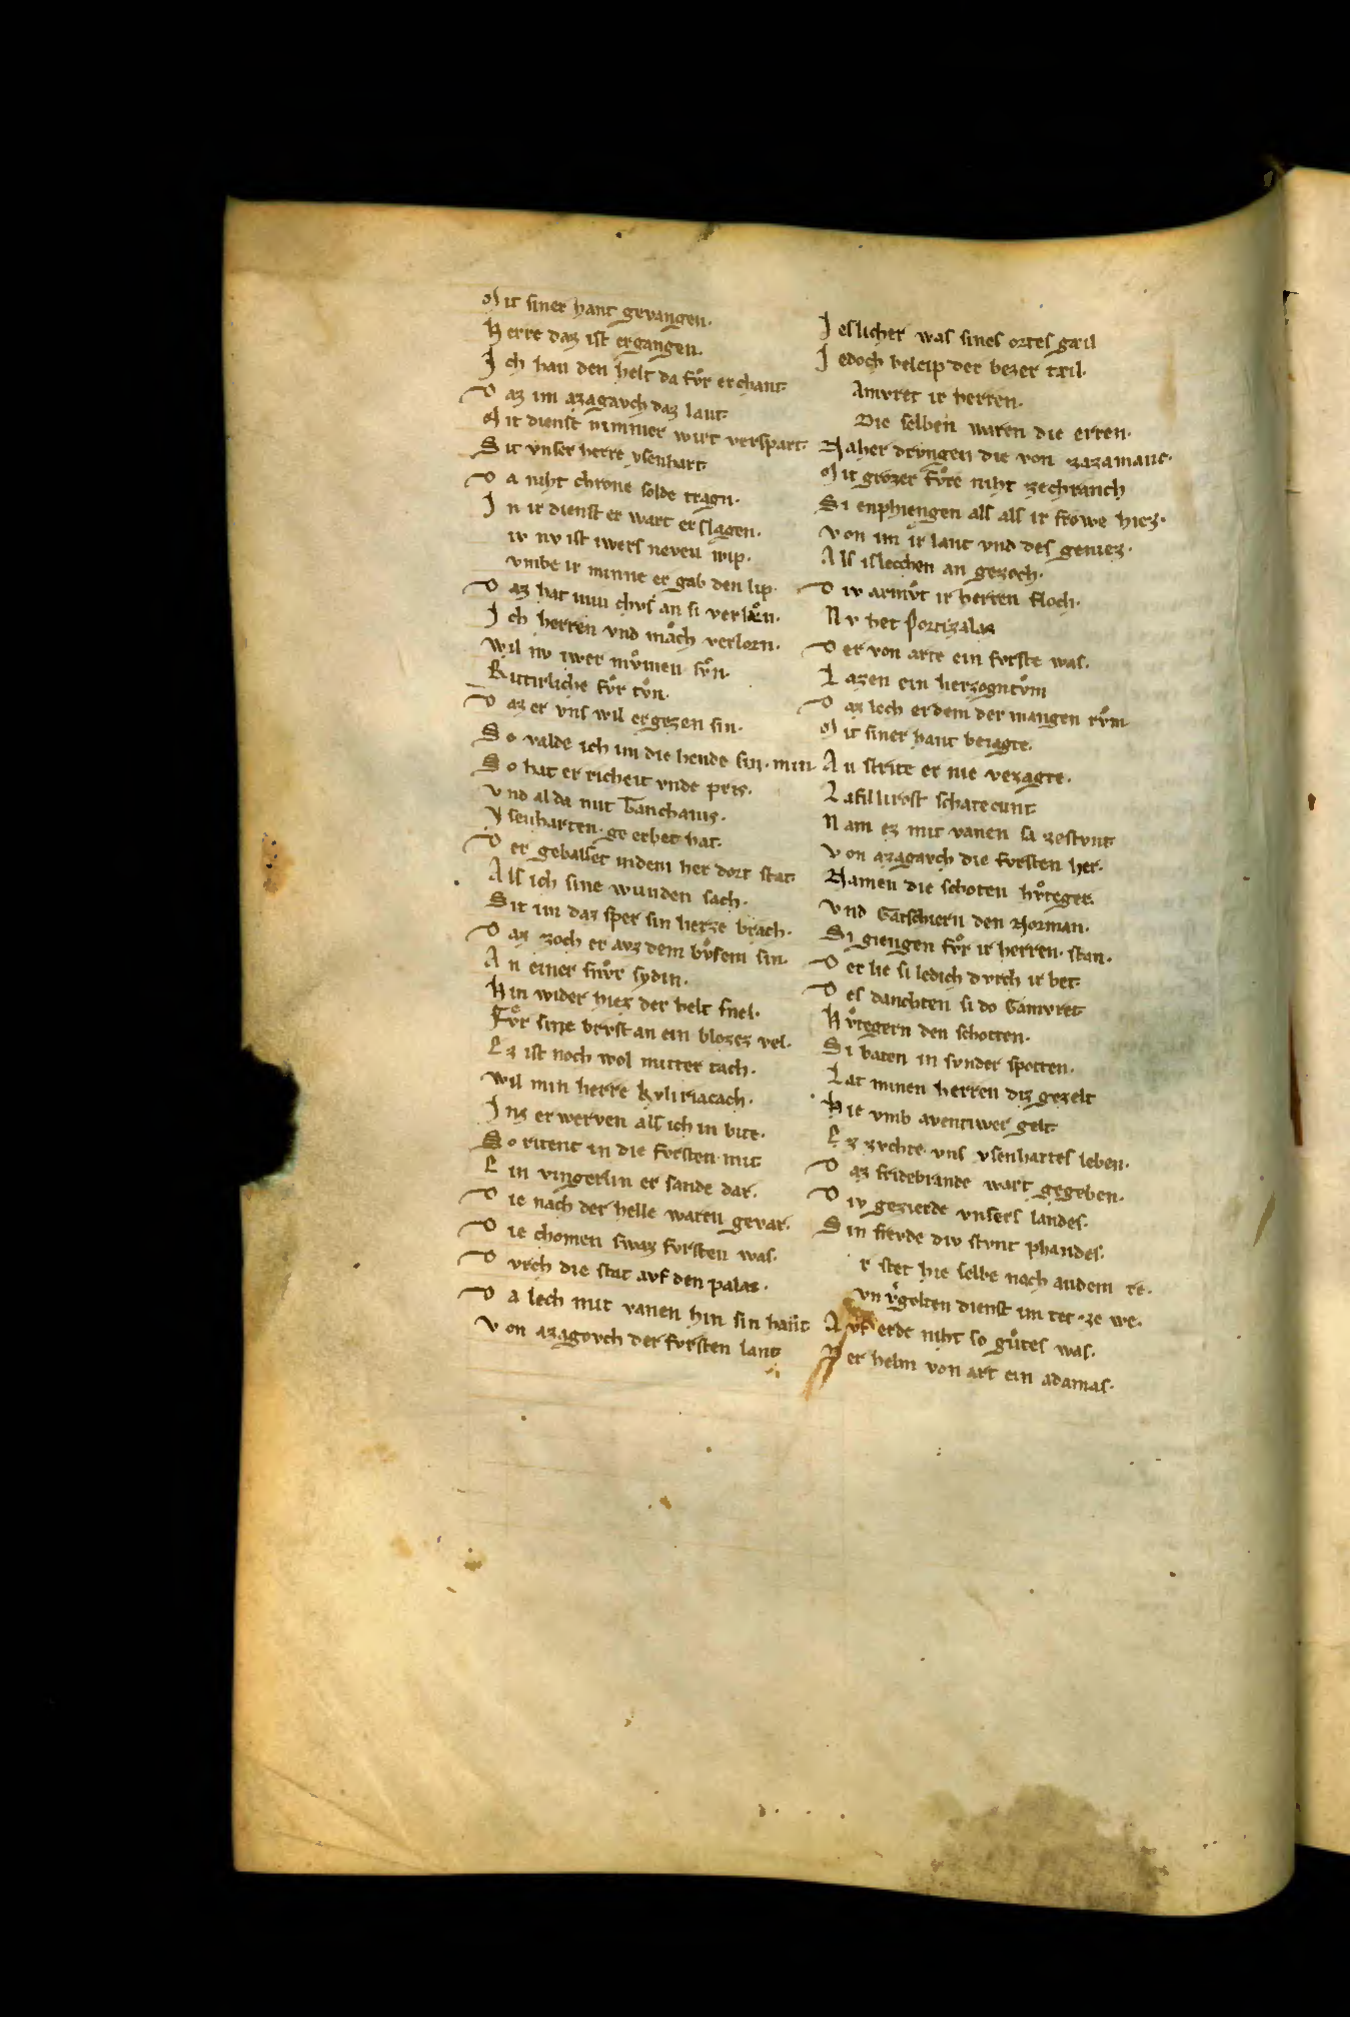 Mit siner hant gevangen.
Herre daz ist ergangen.
Ich han den helt da fvͦr erchant
Daz im azagavch daz lant
Mit dienst nimmer wirt verspart
Sit vnser herre ysenhart
Da niht chrone solde tragn.
In ir dienst er wart erslagen.
iv nv ist iwers neven wip.
vmbe ir minne er gab den lip.
Daz hat min chvs an si verlorn.
Ich herren vnd mach verlorn.
Wil nv iwer mvͦmen svͦn.
Ritterliche fvͦr tvͦn.
Daz er vns wil ergezen sin.
So valde ich im die hende sin. min
So hat er richeit vnde pris.
Vnd al da mit Tanchanis.
Ysenharten. ge erbet hat.
Der gebalset in dem her dort stat
Als ich sine wunden sach.
Sit im daz sper sin herze brach.
Daz zoch er avz dem bvͦsem sin.
An einer snvͦr sydin.
Hin wider hiez der helt snel.
Fvͦr sine brvst an ein blozez vel.
Ez ist noch wol mitter tach.
Wil min herre kyliriacach.
Inz er werven als ich in bite.
So ritent in die fvrsten mit
Ein vingerlin er sande dar.
Die nach der helle waren gevar.
Die chomen swaz fvrsten was.
Dvrch die stat avf den palas.
Da lech mit vanen hin sin hant
Von azagovch der fvrsten lant
Ieslicher was sines ortes gæil
Iedoch beleip der bezer tæil.
Amvret ir herren.
Die selben waren die erren.
Naher drvngen die von zazamanc.
Mit grozer fvͦre niht zechranch
Si enphiengen als als ir frowe hiez.
Von im ir lant vnd des geniez.
Als islecchen an gezoch.
Div armvͦt ir herren floch.
Nv het portizalas
Der von arte ein fvrste was.
Lazen ein herzogntvͦm
Daz lech er dem der mangen rvͦm
Mit siner hant beiagte.
An strite er nie verzagte.
Lafillirost schatecunt
Nam ez mit vanen sa zestvnt
Von azagavch die fvrsten her.
Namen die schoten hvͦteger.
Vnd Gatschiern den Norman.
Si giengen fvͦr ir herren. stan.
Der lie si ledich dvrch ir bet
Des danchten si do Gamvret
Hvͦtegern den schotten.
Si baten in svnder spotten.
Lat minen herren diz gezelt
Hie vmb aventiwer gelt.
Ez zvchte. vns ysenhartes leben.
Daz fridebrande wart gegeben.
Div gezierde vnsers landes.
Sin frevde div stvnt phandes.
r stet hie selbe noch andem re.
vnv̓golten dienst im tet. ze we.
Avf erde niht so gvͦtes was.
Der helm von art ein adamas.